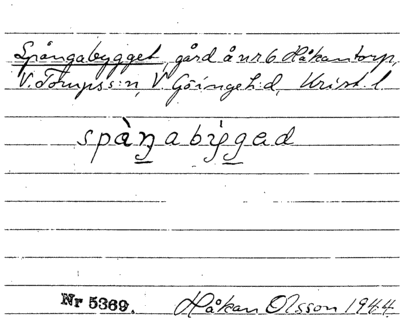 Spångabygget, gård å nr 6 Håkantorp,
V. Torups s:n, V. Göinge h:d, Krist. l
spàŋabẏgad
Nr 5369. Håkan Olsson 1944.